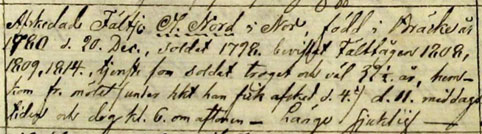 Afskedade Fältj. N. Nord i Nor, född i Bräcke år
1780 d. 20. Dec., soldat 1798. bevistat Fälttågen 1808,
1809, 1814., tjenst som soldat troget och väl 32½ år, hem-
kom fr. mötet (under hkt han fick afsked d. 4.) d. 11. middags
tiden och dog kl. 6. om aftonen — länge sjuklig —